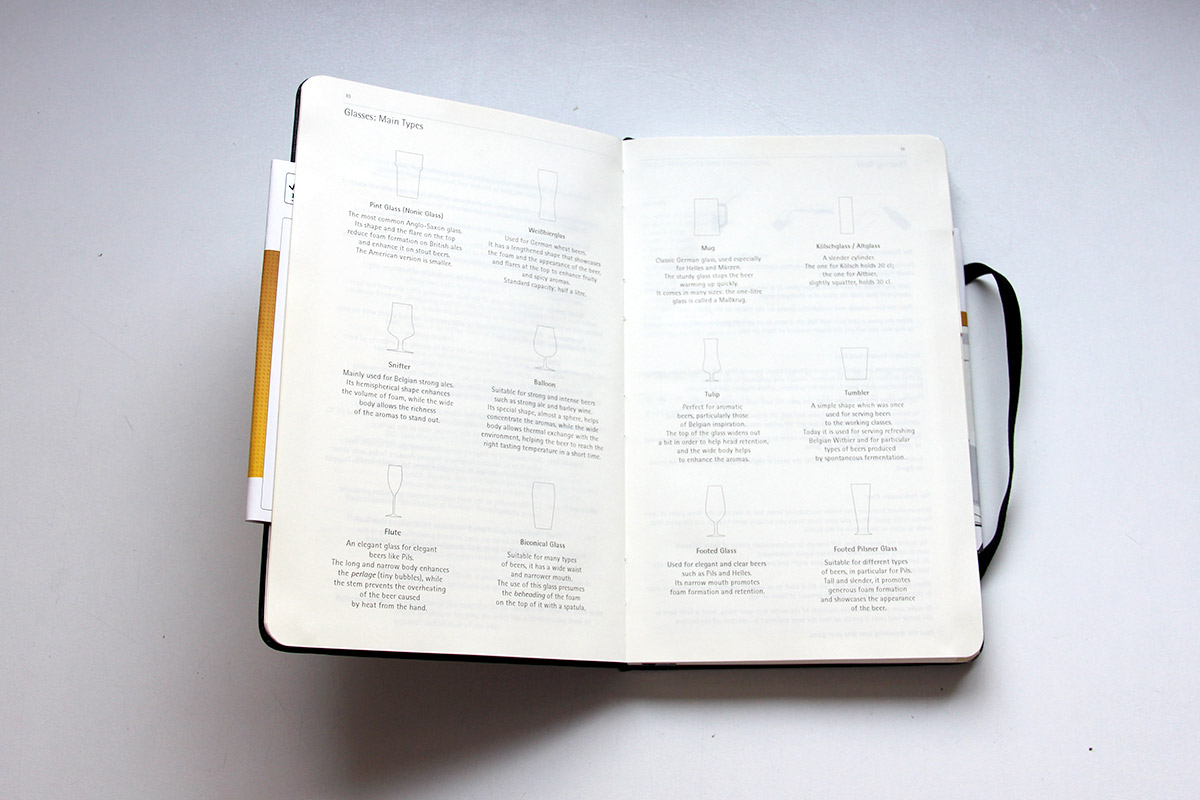 Glasses: Main Types
Pint Glass (Nonic Glass)
The most common Anglo-Saxon glass.
Its shape and the flare on the top
reduce foam formation on British ales
and enhance it on stout beers.
The American version is smaller.
Weißbierglas
Used for German wheat beers.
It has a lengthened shape that showcases
the foam and the appearance of the beer,
and flares at the top to enhance fruity
and spicy aromas.
Standard capacity: half a litre.
Snifter
Mainly used for Belgian strong ales.
Its hemispherical shape enhances
the volume of foam, while the wide
body allows the richness
of the aromas to stand out.
Balloon
Suitable for strong and intense beers
such as strong ale and barley wine.
Its special shape, almost a sphere, helps
concentrate the aromas, while the wide
body allows thermal exchange with the
environment, helping the beer to reach the
right tasting temperature in a short time.
Flute
An elegant glass for elegant
beers like Pils.
The long and narrow body enhances
the perlage (tiny bubbles), while
the stem prevents the overheating
of the beer caused
by heat from the hand.
Biconical Glass
Suitable for many types
of beers, it has a wide waist
and narrower mouth.
The use of this glass presumes
the beheading of the foam
on the top of it with a spatula.
Mug
Classic German glass, used especially
for Helles and Märzen.
The sturdy glass stops the beer
warming up quickly.
It comes in many sizes: the one-litre
glass is called a Maßkrug.
Kölschglass / Altglass
A slender cylinder.
The one for Kölsch holds 20 cl;
the one for Altbier,
slightly squatter, holds 30 cl.
Tulip
Perfect for aromatic
beers, particularly those
of Belgian inspiration.
The top of the glass widens out
a bit in order to help head retention,
and the wide body helps
to enhance the aromas.
Tumbler
A simple shape which was once
used for serving beers
to the working classes.
Today it is used for serving refreshing
Belgian Witbier and for particular
types of beers produced
by spontaneous fermentation.
Footed Glass
Used for elegant and clear beers
such as Pils and Helles.
Its narrow mouth promotes
foam formation and retention.
Footed Pilsner Glass
Suitable for different types
of beers, in particular for Pils.
Tall and slender, it promotes
generous foam formation
and showcases the appearance
of the beer.